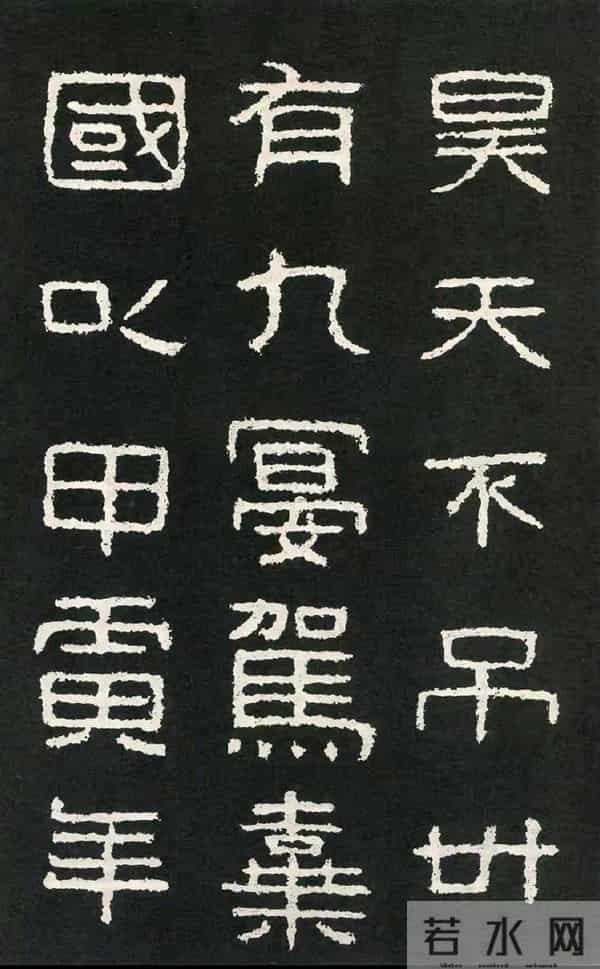 昊天不吊卅
有九宴駕棄
國以甲寅年
若水网